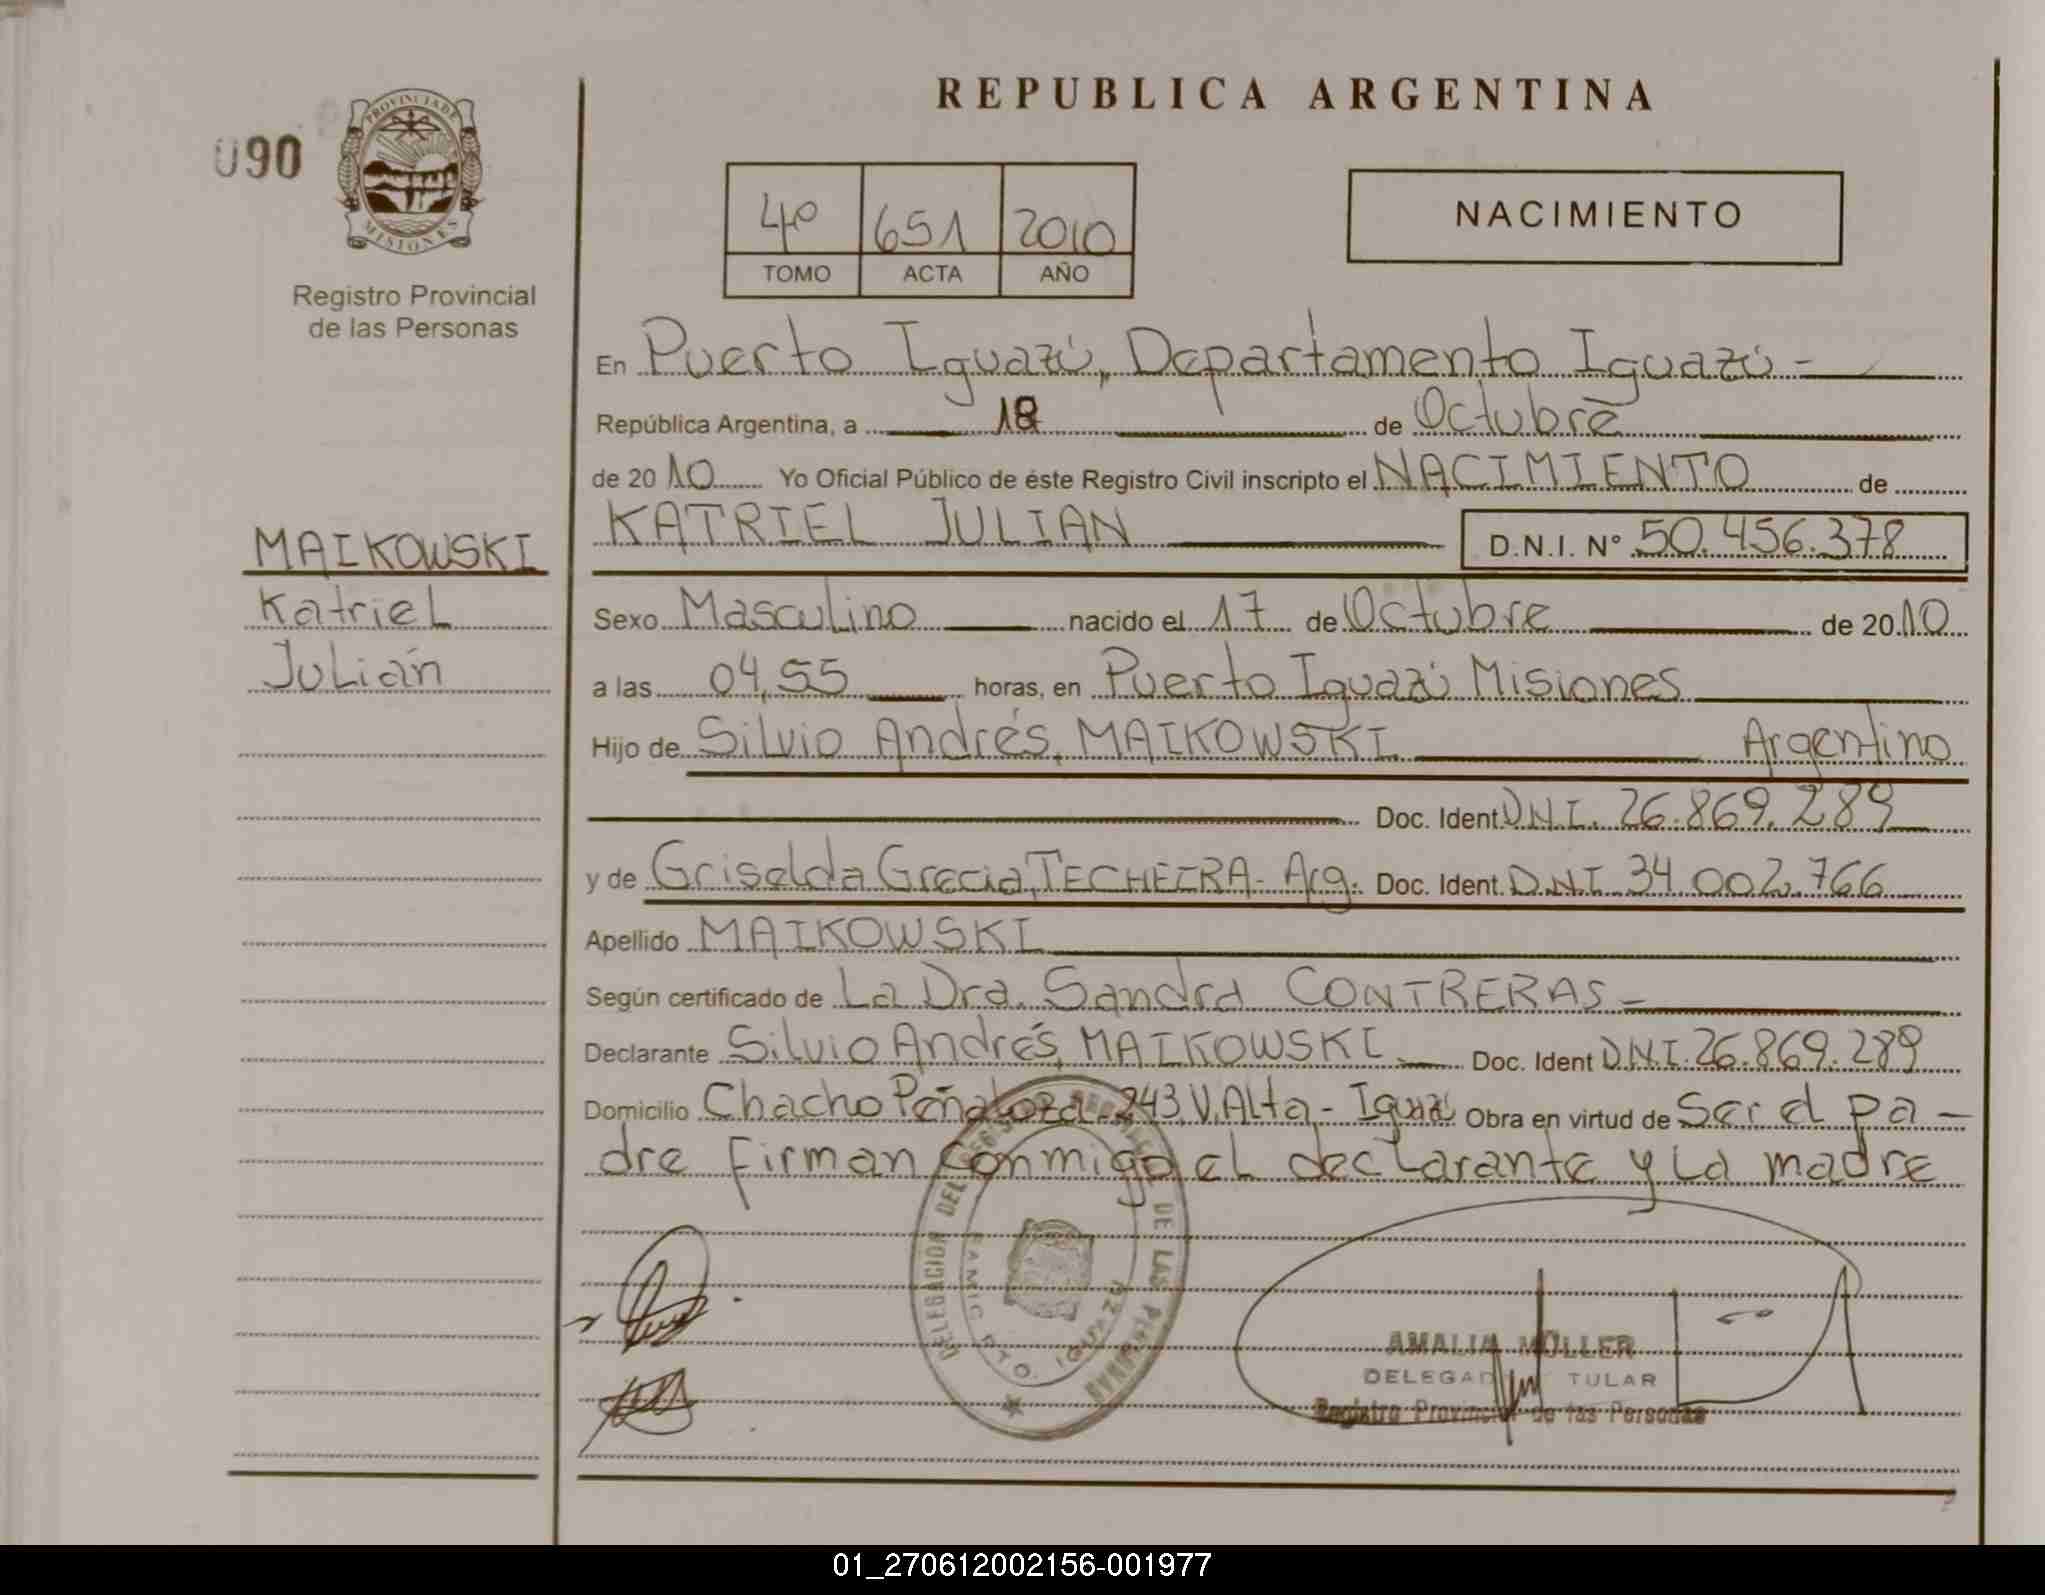 REPUBLICA ARGENTINA
090
PROVINCIA DE
MISIONES
Registro Provincial
de las Personas
4º 651 2010
TOMO ACTA AÑO
NACIMIENTO
En Puerto Iguazú, Departamento Iguazú -
República Argentina, a 18 de Octubre
de 2010 Yo Oficial Público de éste Registro Civil inscripto el NACIMIENTO de
KATRIEL JULIAN D.N.I. Nº 50.456.378
MAIKOWSKI
Katriel
Julián
Sexo Masculino nacido el 17 de Octubre de 2010
a las 04,55 horas, en Puerto Iguazú Misiones
Hijo de Silvio Andrés, MAIKOWSKI Argentino
Doc. Ident. D.N.I. 26.869.289
y de Griselda Grecia, TECHEIRA - Arg. Doc. Ident. D.N.I 34.002.766
Apellido MAIKOWSKI
Según certificado de La Dra. Sandra CONTRERAS -
Declarante Silvio Andrés, MAIKOWSKI Doc. Ident D.N.I. 26.869.289
Domicilio Chacho Peñaloza - 243, V. Alta - Iguazú Obra en virtud de Ser el pa -
dre firman conmigo el declarante y la madre
DELEGACIÓN DEL REGISTRO PROVINCIAL DE LAS PERSONAS
SAMIC PTO. IGUAZU
AMALIA MÜLLER
DELEGADA TITULAR
Registro Provincial de las Personas
01_270612002156-001977